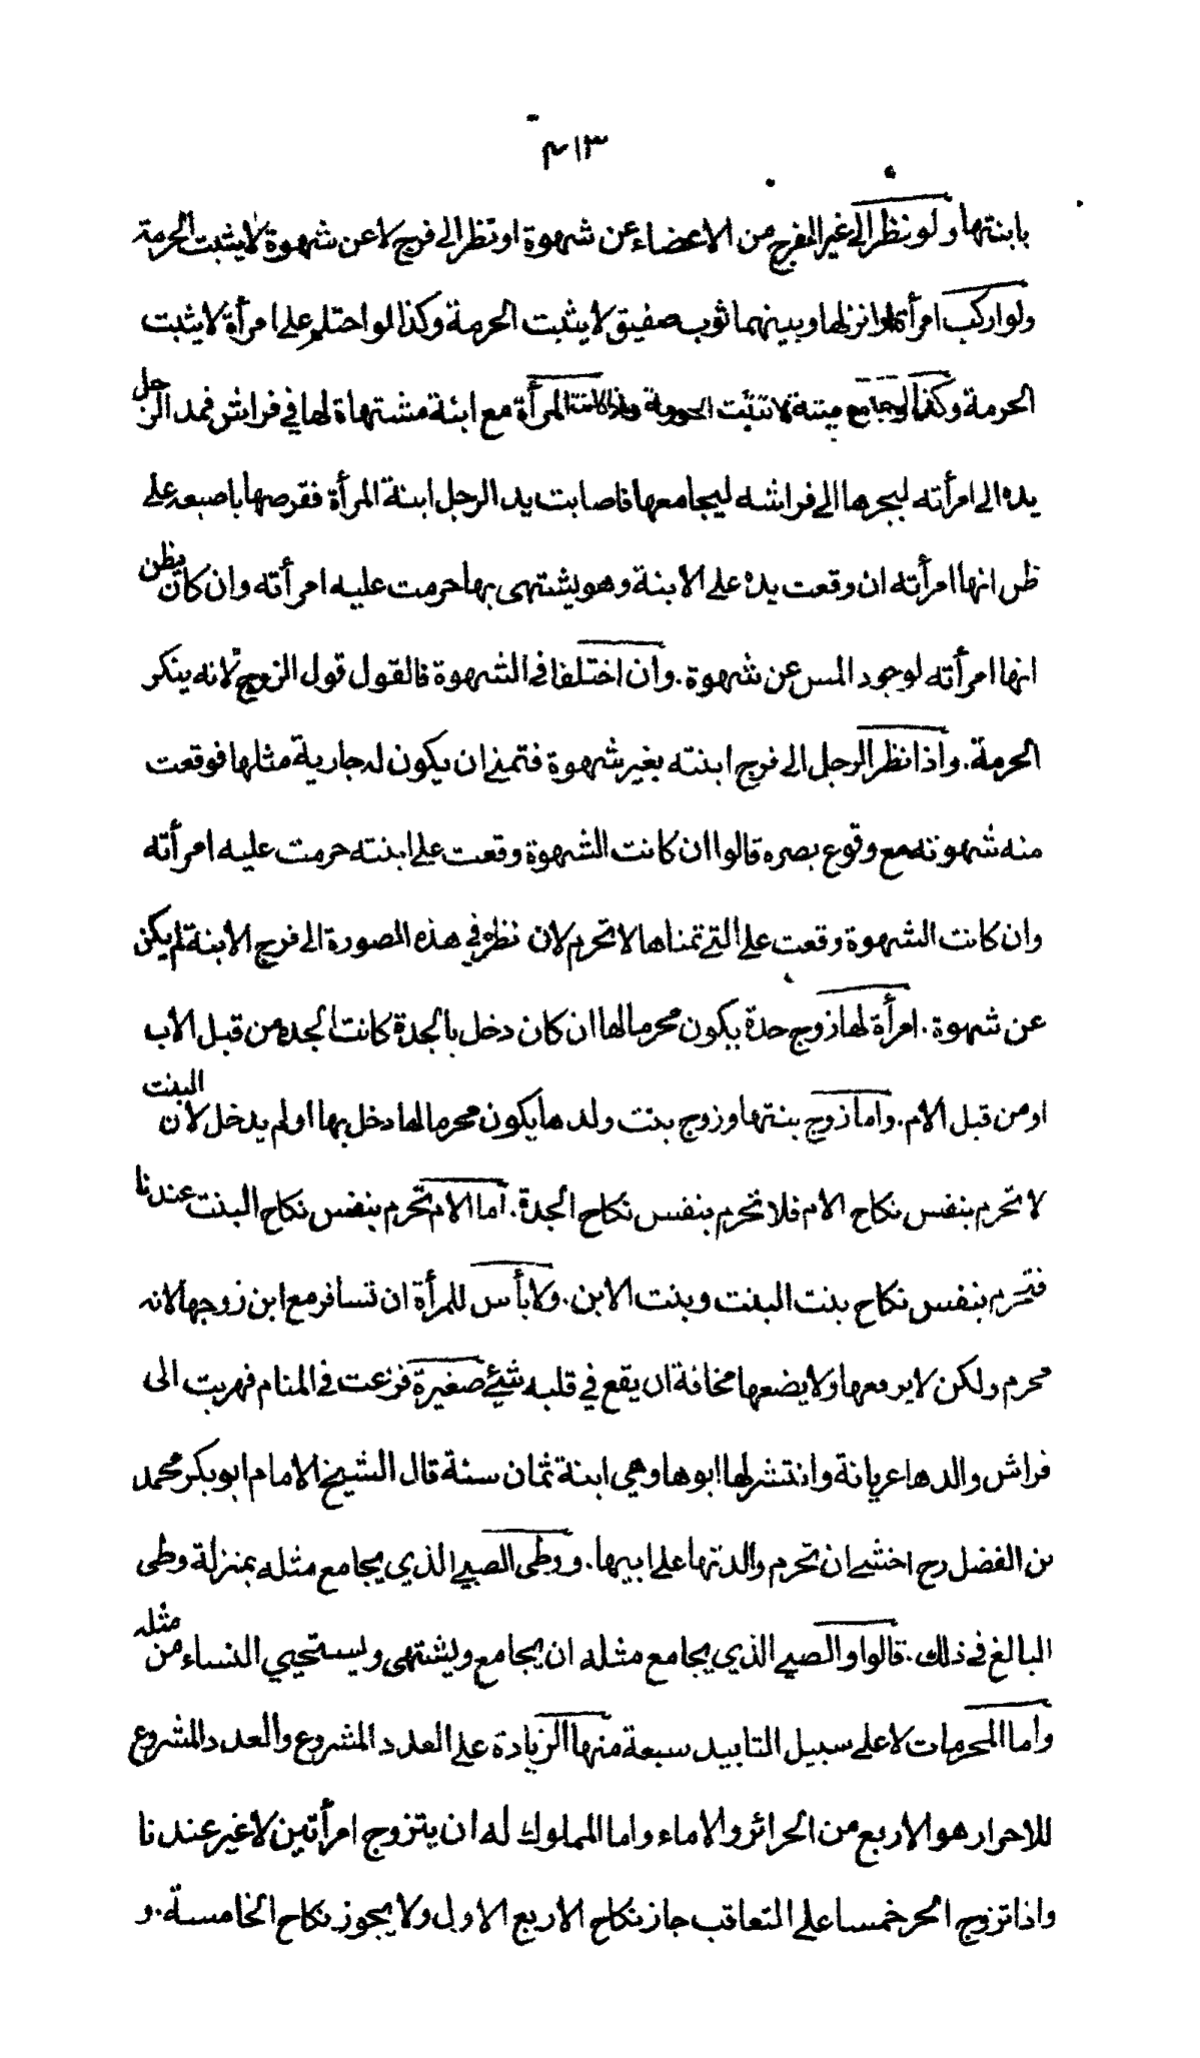 ٤١٣
بابنتها ولو نظر الى غير الفرج من الاعضاء عن شهوة او نظر الى فرج لا عن شهوة لا يثبت الحرمة
ولو اركب امرأة او انزلها وبينهما ثوب صفيق لا يثبت الحرمة وكذا لو احتلم على امرأة لا يثبت
الحرمة وكذا لو جامع ميتة لا تثبت الحرمة واذا كانت المرأة مع ابنة مشتهاة لها في فراش فمد الرجل
يده الى امرأته ليجرها الى فراشه ليجامعها فاصابت يد الرجل ابنة المرأة فقرصها باصبعه على
ظن انها امرأته ان وقعت يده على الابنة وهو يشتهى بها حرمت عليه امرأته وان كان يظن
انها امرأته لوجود المس عن شهوة. وان اختلفا في الشهوة فالقول قول الزوج لانه ينكر
الحرمة. واذا نظر الرجل الى فرج ابنته بغير شهوة فتمنى ان يكون له جارية مثلها فوقعت
منه شهوته مع وقوع بصره قالوا ان كانت الشهوة وقعت على ابنته حرمت عليه امرأته
وان كانت الشهوة وقعت على التي تمناها لا تحرم لان نظره في هذه الصورة الى فرج الابنة لم يكن
عن شهوة. امرأة لها زوج جدة يكون محرما لها ان كان دخل بالجدة كانت الجده من قبل الاب
او من قبل الام. واما زوج بنتها وزوج بنت ولدها يكون محرما لها دخل بها او لم يدخل لان البنت
لا تحرم بنفس نكاح الام فلا تحرم بنفس نكاح الجدة. اما الام تحرم بنفس نكاح البنت عندنا
فتحرم بنفس نكاح بنت البنت وبنت الابن. ولا بأس للمرأة ان تسافر مع ابن زوجها لانه
محرم ولكن لا يرفعها ولا يضعها مخافة ان يقع في قلبه شيئ صغيرة فزعت في المنام فهربت الى
فراش والدها عريانة وانتشر لها ابوها وهي ابنة ثمان سنة قال الشيخ الامام ابو بكر محمد
بن الفضل رح اخشى ان تحرم والدتها على ابيها. ووطى الصبي الذي يجامع مثله بمنزلة وطى
البالغ في ذلك. قالوا والصبي الذي يجامع مثله ان يجامع ويشتهى ويستحيي النساء من مثله
واما المحرمات لا على سبيل التابيد سبعة منها الزيادة على العدد المشروع والعدد المشروع
للاحرار هو الاربع من الحرائر والاماء واما المملوك له ان يتزوج امرأتين لا غير عندنا
واذا تزوج الحر خمسا على التعاقب جاز نكاح الاربع الاول ولا يجوز نكاح الخامسة. و